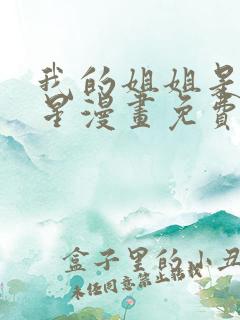 我的姐姐是
星漫畫免費
盒子里的小丑
未任同意禁止转载